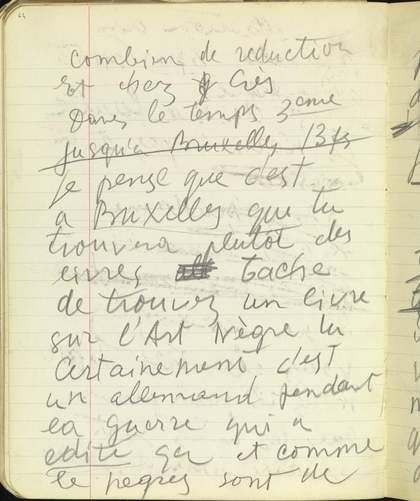 combien de reduction
Et chez Crès
Dans le temps 3eme
jusqu'a Bruxelles 13 frs
je pense que c'est
a Bruxelles que tu
trouvera plutôt des
livres tache
de trouvez un livre
sur l'Art Nègre la
Certainement c'est
un allemand pendant
la guerre qui a
edité ça et comme
le negres sont de